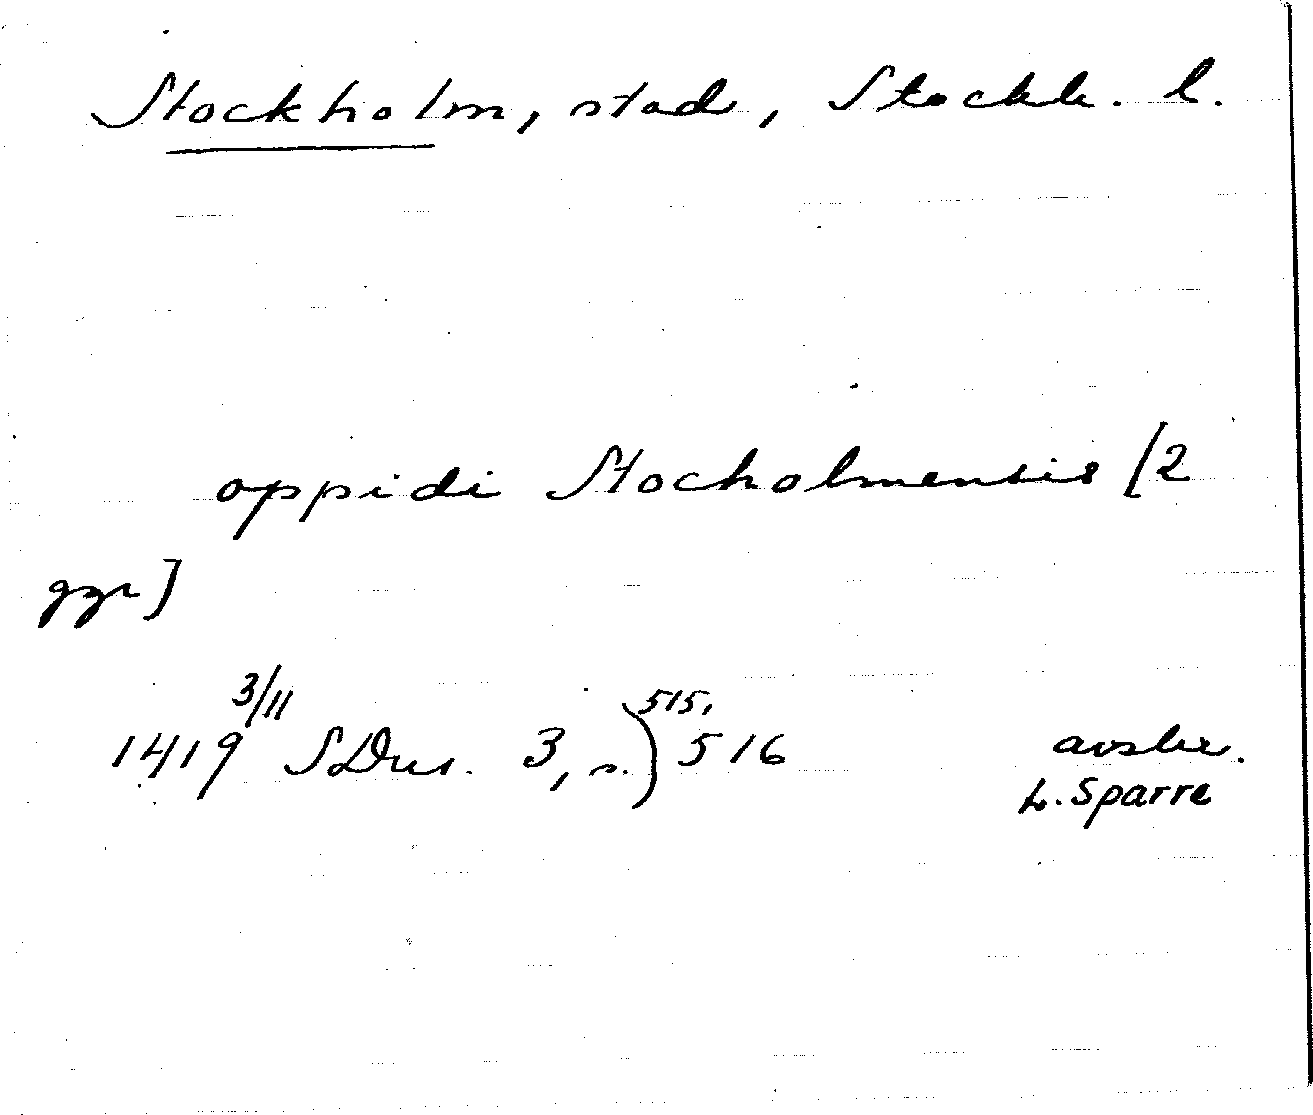 Stockholm, stad, Stockh. l.
oppidi Stocholmensis [2
ggr]
1419 3/11 SDns. 3, s. 515, 516 avskr.
L. Sparre